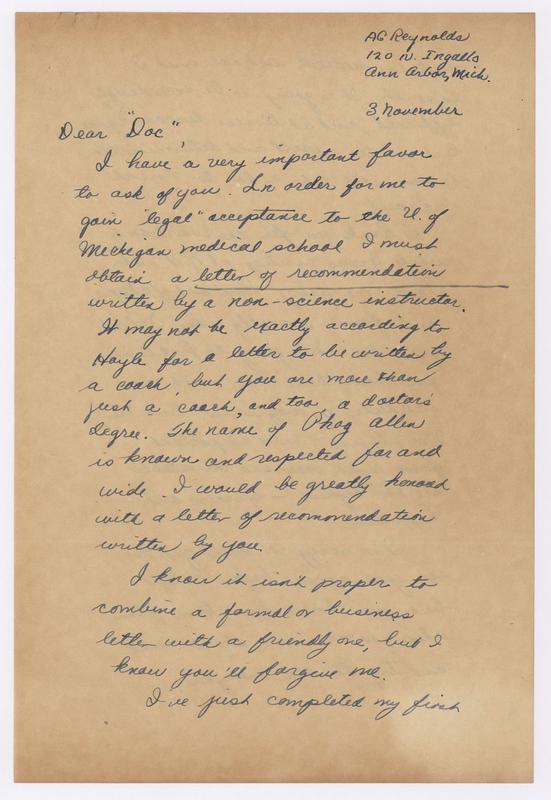 AG Reynolds
120 N. Ingalls
Ann Arbor, Mich.
3, November
Dear "Doc",
I have a very important favor
to ask of you. In order for me to
gain "legal" acceptance to the U. of
Michigan medical school I must
obtain a letter of recommendation
written by a non-science instructor.
It may not be exactly according to
Hoyle for a letter to be written by
a coach, but you are more than
just a coach, and too, a doctor's
degree. The name of Phog Allen
is known and respected far and
wide. I would be greatly honored
with a letter of recommendation
written by you.
I know it isn't proper to
combine a formal or business
letter with a friendly one, but I
know you'll forgive me.
I've just completed my first